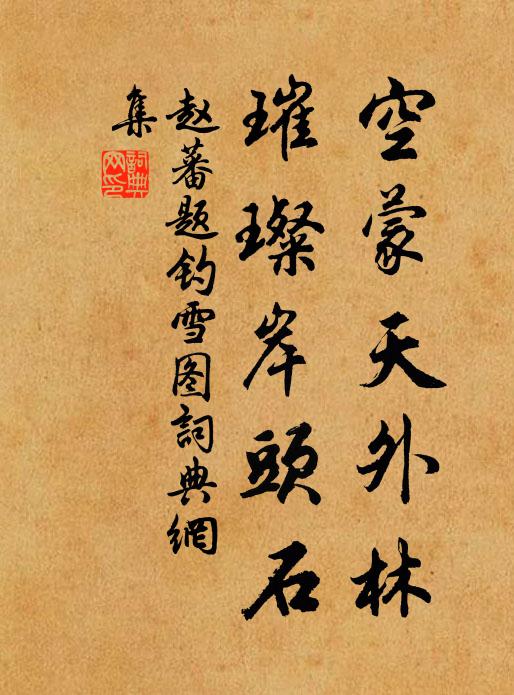 空蒙天外林
璀璨岸頭石
赵蕃题钓雪图詞典網
集
詞典
网印